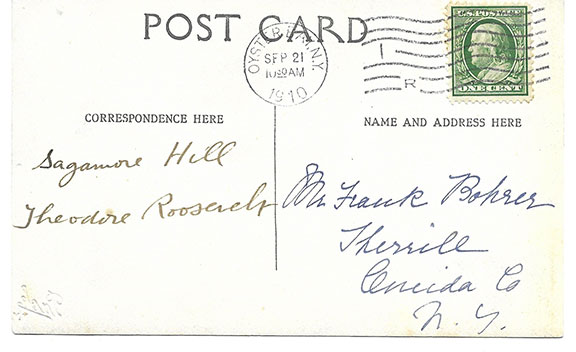 POST CARD
OYSTER BAY, N.Y.
SEP 21
10 30 AM
1910
R
U.S. POSTAGE
ONE CENT
CORRESPONDENCE HERE
NAME AND ADDRESS HERE
Sagamore Hill
Theodore Roosevelt
Mr Frank Bohrer
Sherrill
Oneida Co
N. Y.